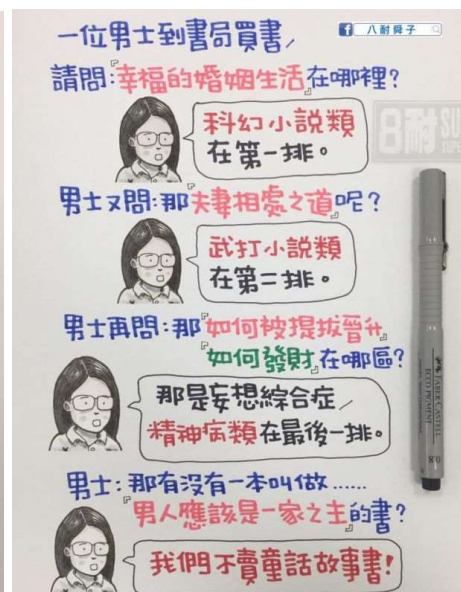 八耐舜子
一位男士到書局買書/
請問:『幸福的婚姻生活』在哪裡?
科幻小説類
在第一排。
8耐 SU
SUPE
男士又問:那『夫妻相處之道』呢?
武打小説類
在第二排。
男士再問:那『如何被提拔晉升』
『如何發財』在哪區?
那是妄想綜合症/
精神病類在最後一排。
FABER-CASTELL
ECCO PIGMENT
0.8
男士:那有沒有一本叫做……
『男人應該是一家之主』的書?
我們不賣童話故事書!